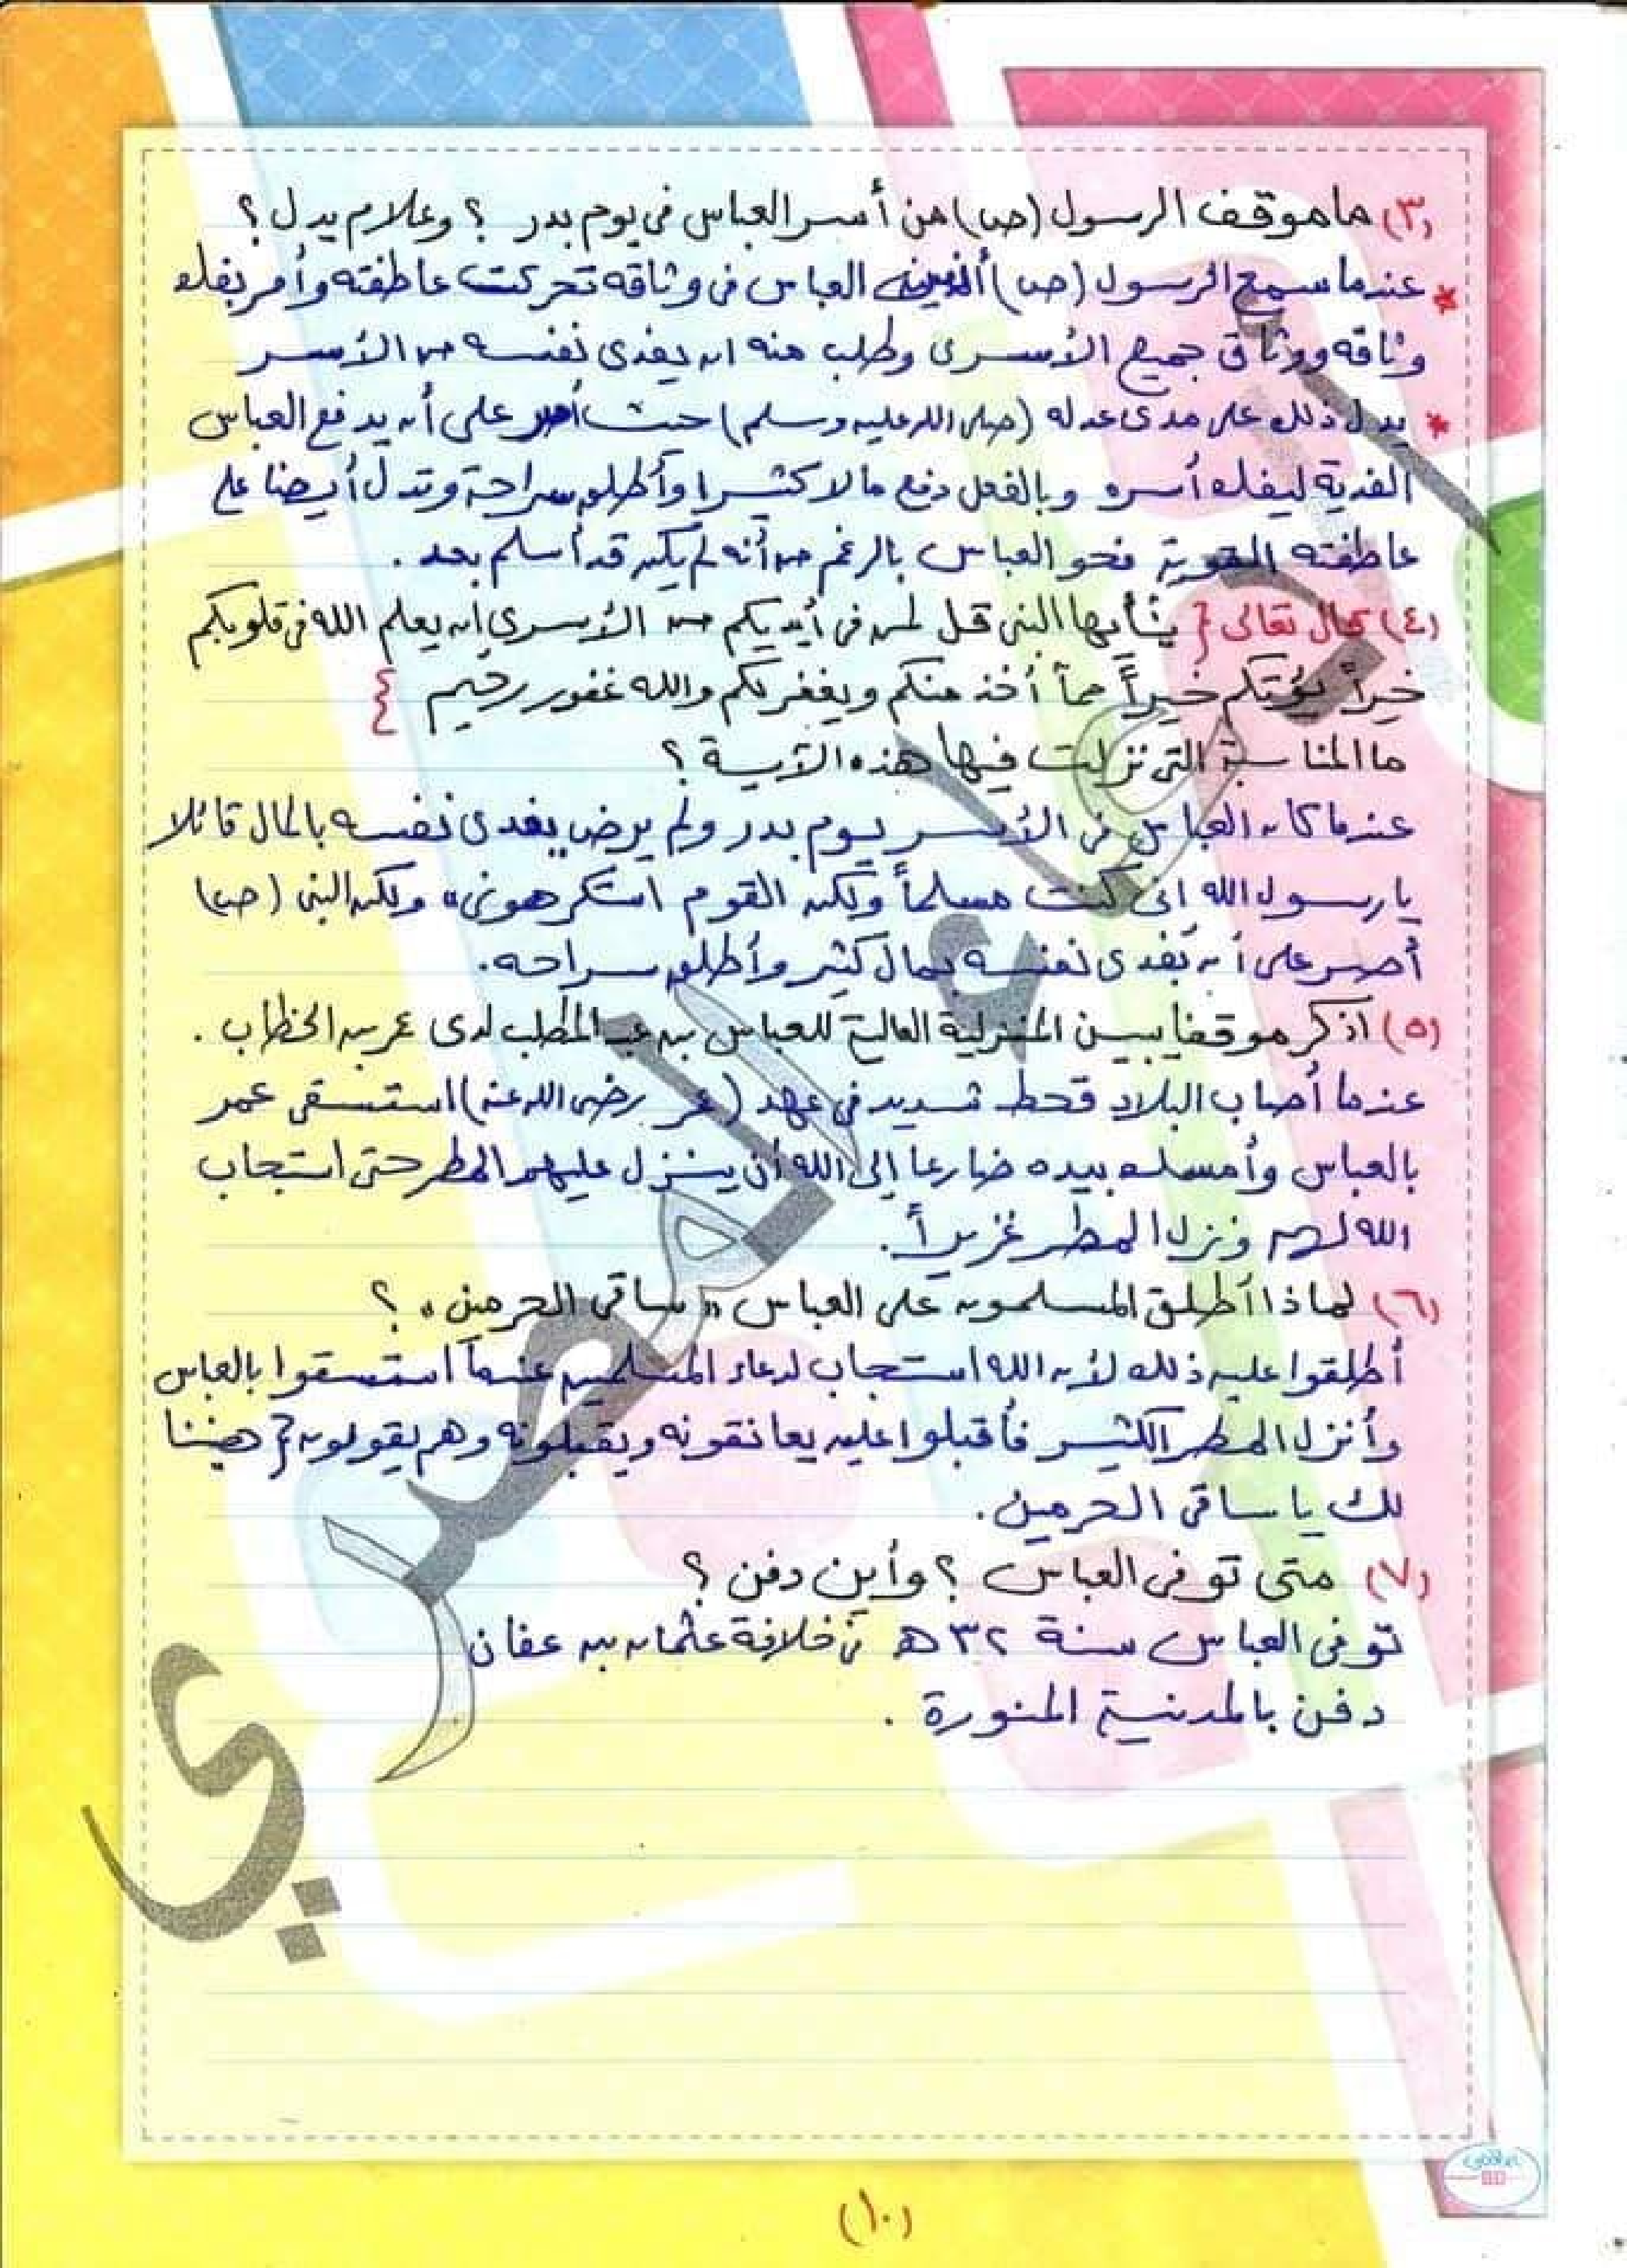 (٣) ما موقف الرسول (ص) من أسر العباس في يوم بدر ؟ وعلام يدل ؟
* عندما سمع الرسول (ص) أنين العباس في وثاقه تحركت عاطفته وأمر بفك
وثاقه ووثاق جميع الأسرى وطلب منه ان يفدى نفسه من الأسر
* يدل ذلك على مدى عدله (صلى الله عليه وسلم) حيث أصر على أن يدفع العباس
الفدية ليفك أسره وبالفعل دفع مالا كثيرا وأطلق سراحة وتدل أيضا على
عاطفته القوية نحو العباس بالرغم من أنه لم يكن قد أسلم بعد .
(٤) قال تعالى { يٰأيها النبى قل لمن فى أيديكم من الأسرى إن يعلم الله فى قلوبكم
خيراً يؤتكم خيراً مما أخذ منكم ويغفر لكم والله غفور رحيم }
ما المناسبة التى نزلت فيها هذه الآية ؟
عندما كان العباس فى الأسر يوم بدر ولم يرض يفدى نفسه بالمال قائلا
يا رسول الله إنى كنت مسلماً ولكن القوم استكرهونى" ولكن النبى (ص)
أصر على أن يفدى نفسه بمال كثير وأطلق سراحه.
(٥) اذكر موقفا يبين المنزلة العالية للعباس بن عبد المطلب لدى عمر بن الخطاب .
عندما أصاب البلاد قحط شديد فى عهد (عمر رضى الله عنه) استسقى عمر
بالعباس وأمسك بيده ضارعا إلى الله أن ينزل عليهم المطر حتى استجاب
الله لهم ونزل المطر غزيراً.
(٦) لماذا أطلق المسلمون على العباس "ساقى الحرمين" ؟
أطلقوا عليه ذلك لأن الله استجاب لدعاء المسلمين عندما استسقوا بالعباس
وأنزل المطر الكثير فأقبلوا عليه يعانقونه ويقبلونه وهم يقولون { هنيئا
لك يا ساقى الحرمين.
(٧) متى توفى العباس ؟ وأين دفن ؟
توفى العباس سنة ٣٢ هـ فى خلافة عثمان بن عفان
دفن بالمدينة المنورة .
(١٠)